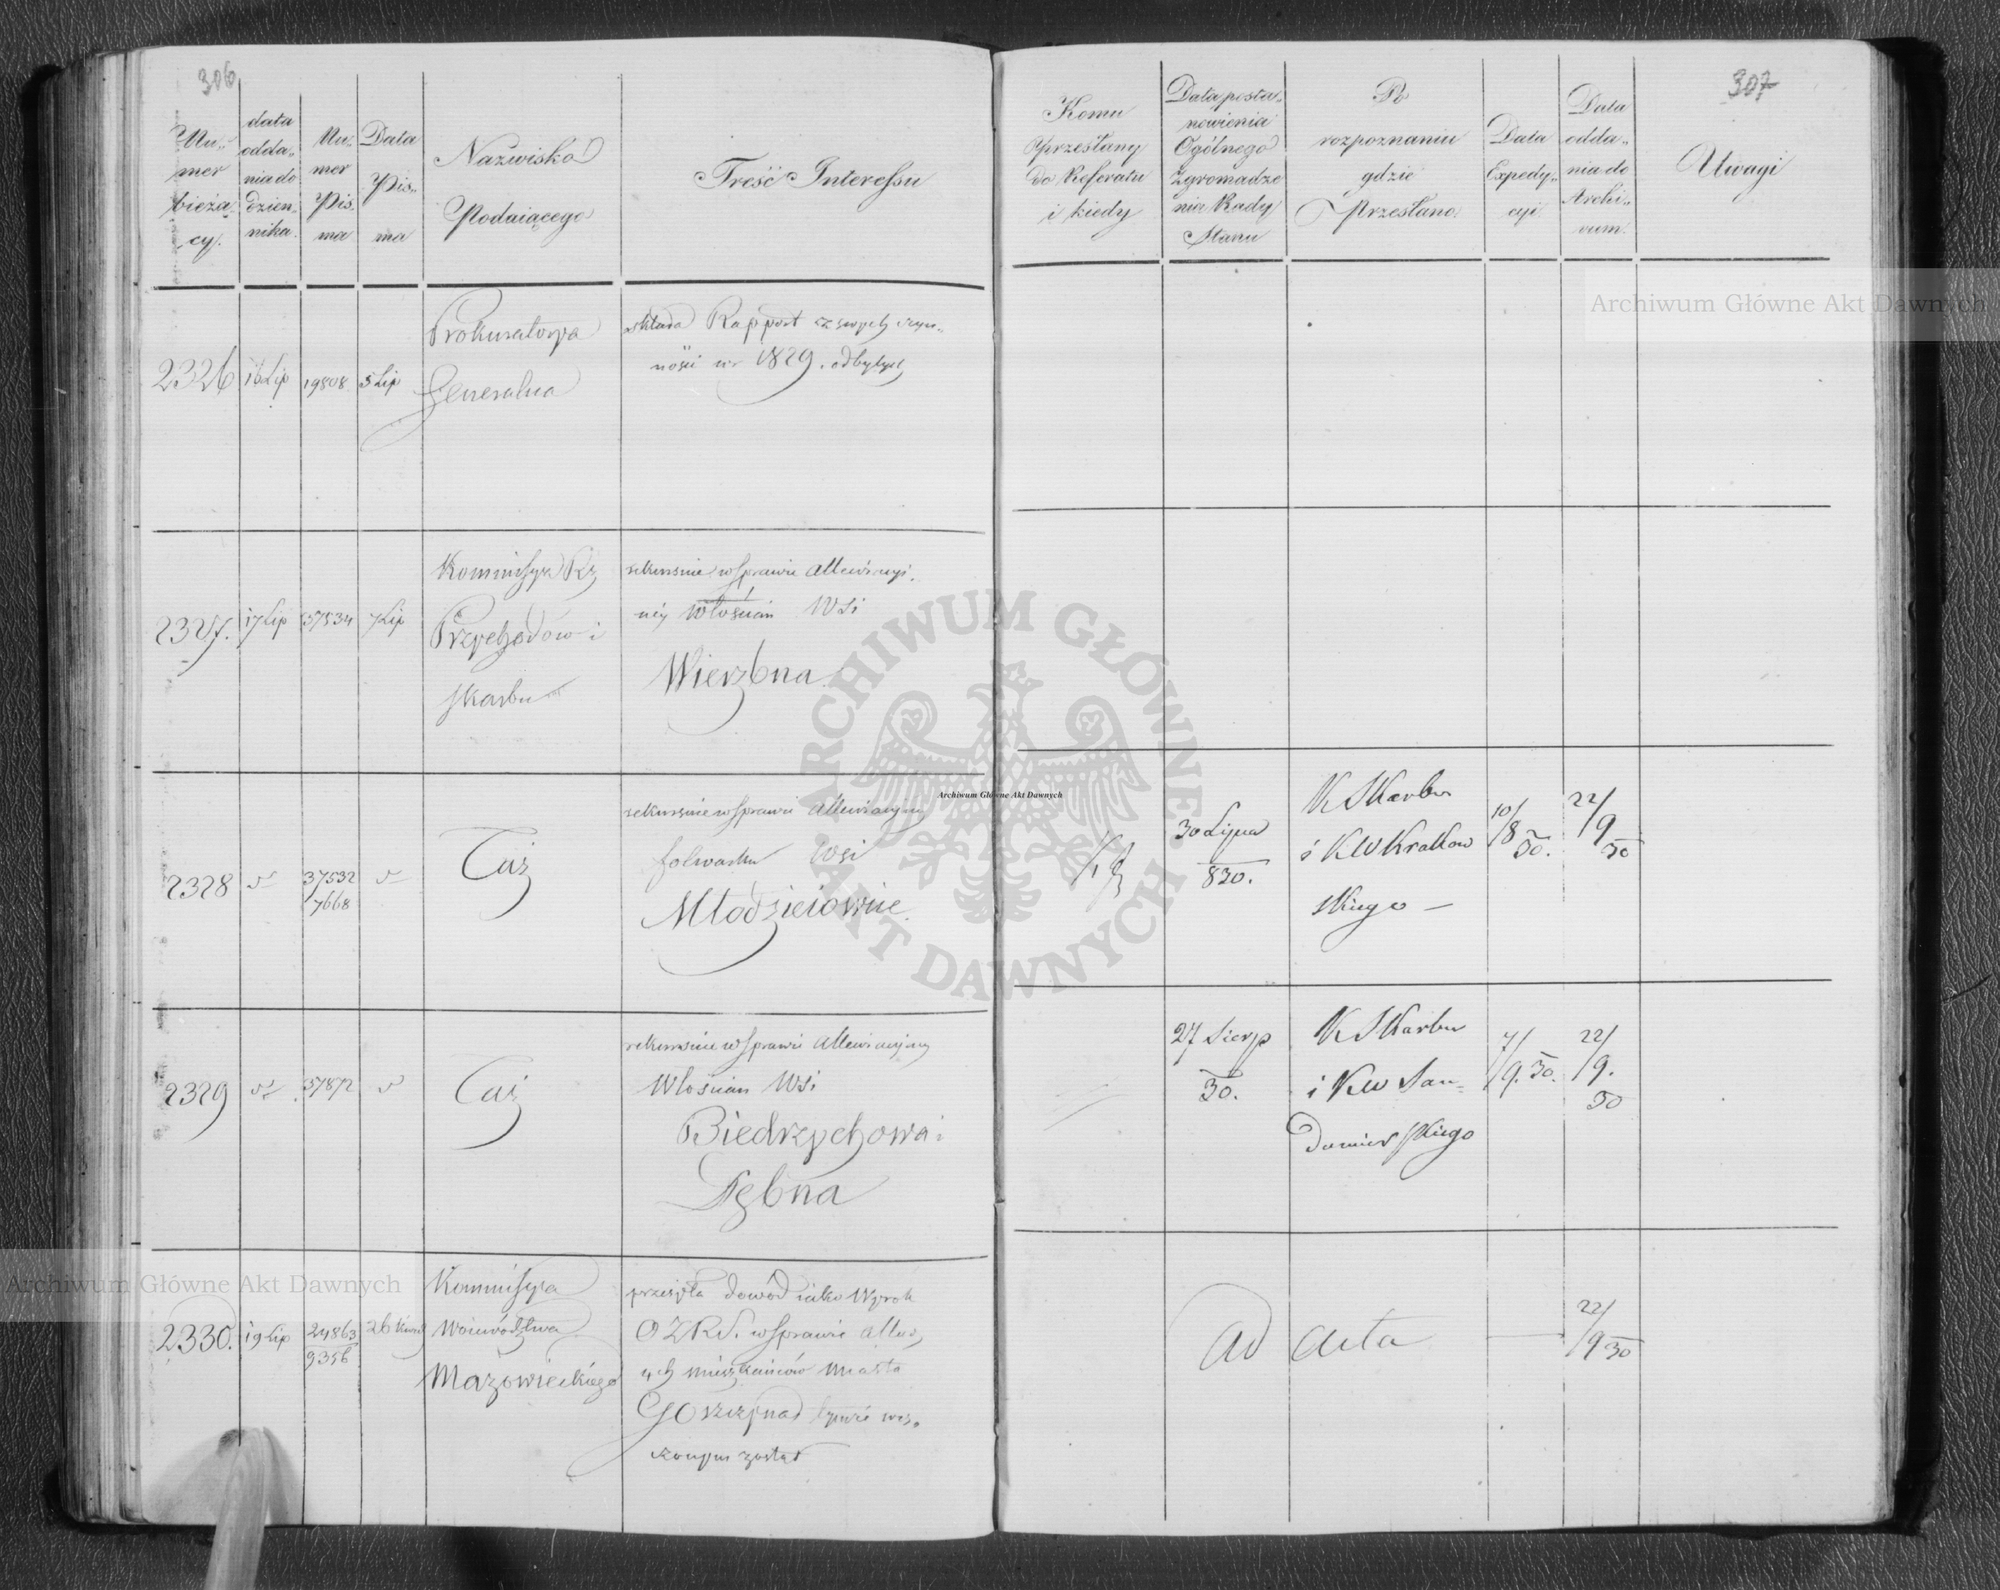 306
Nu-
mer
bieżą-
cy.
data
odda-
nia do
dzien-
nika.
Nu-
mer
Pis-
ma
Data
Pis-
ma
Nazwisko
Podaiącego
Treść Interessu
2326
16 Lip
19808
5 Lip
Prokuratorya
Generalna
składa Rapport z swych czyn-
ności w r 1829. odbytych
2327.
17 Lip
37534
7 Lip
Kommissya Rz
Przychodów i
Skarbu
rekursuie w sprawie allewiacyi-
ney Włościan Wsi
Wierzbna
2328
37532
7668
Taż
rekursuie w sprawie allewiacyiney
folwarku Wsi
Młodzieiowice
2329
37872
Taż
rekursuie w sprawie allewiacyiney
Włościan Wsi
Biedrzychowa i
Dębna
2330.
19 Lip
24863
9356
26
Kommissya
Woiewództwa
Mazowieckiego
przesyła dowód iako Wyrok
OZRS. w sprawie
mieszkańców miasta
został
307
Komu
Przesłany
do Referatu
i kiedy
Data posta-
nowienia
Ogólnego
Zgromadze
nia Rady
Stanu
Po
rozpoznaniu
gdzie
Przesłano
Data
Expedy-
cyi
Data
odda-
nia do
Archi-
vum.
Uwagi
30 Lipca
830.
K Skarbu
i KW Krakow
skiego —
10/8 30.
22/9 30
27 Sierp
30.
K Skarbu
i KW San-
domierskiego
7/9. 30.
22/9. 30
ad acta
22/9 30
Archiwum Główne Akt Dawnych
Archiwum Główne Akt Dawnych
Archiwum Główne Akt Dawnych
ARCHIWUM GŁÓWNE
AKT DAWNYCH